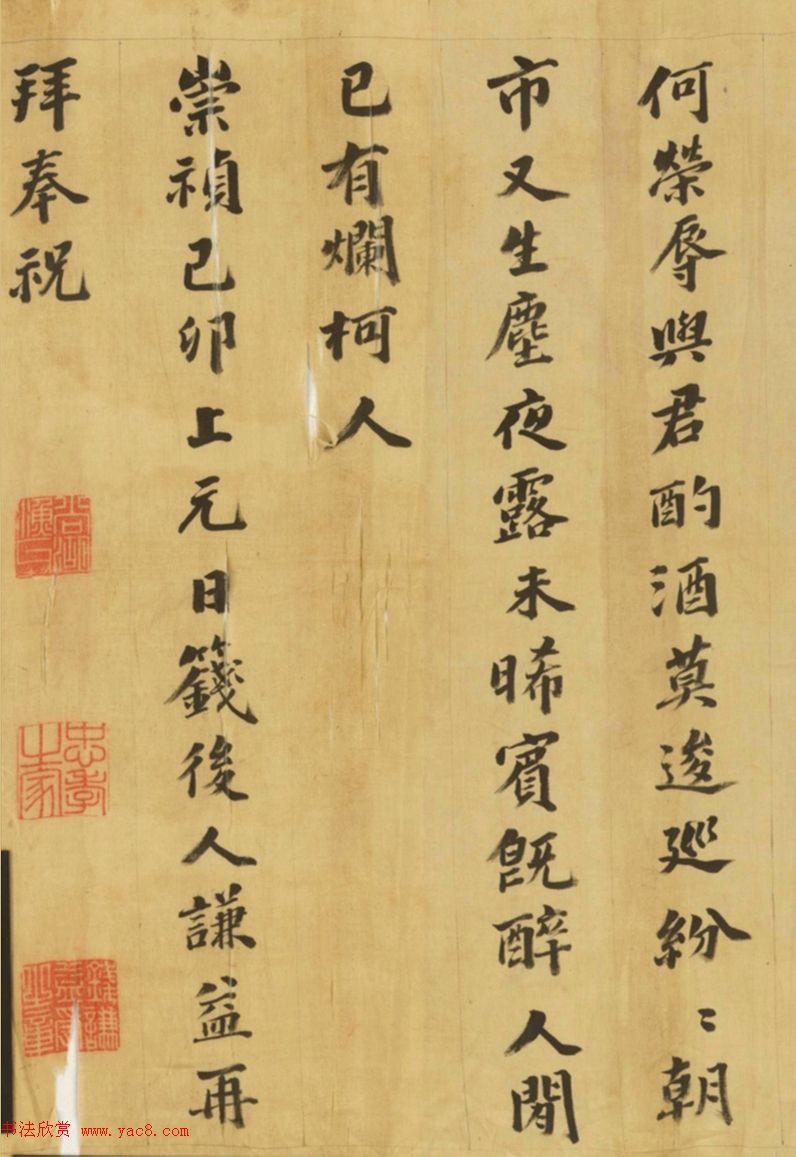 何榮辱與君酌酒莫逡廵紛〻朝
市又生塵夜露未晞賓既醉人閒
已有爛柯人
崇禎己卯上元日籛後人謙益再
拜奉祝
尚湖漁父
忠孝之家
书法欣赏 www.yac8.com